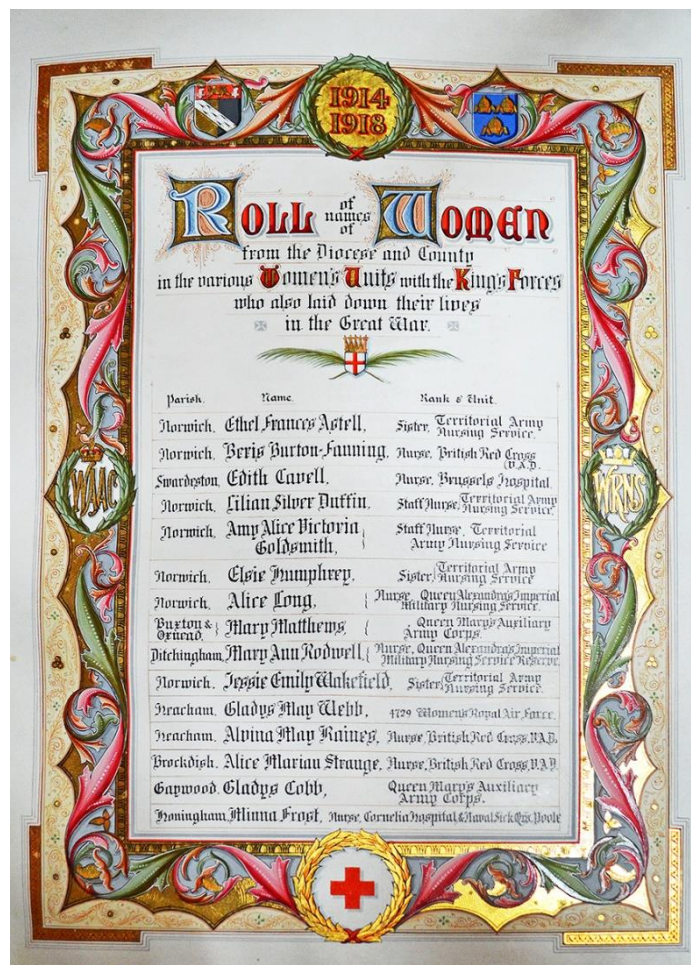 1914
1918
Roll of names of Women
from the Diocese and County
in the various Women's Units with the King's Forces
who also laid down their lives
in the Great War.
Parish. Name. Rank & Unit.
Norwich. Ethel Frances Astell, Sister, Territorial Army Nursing Service.
Norwich. Beris Burton-Fanning, Nurse, British Red Cross V.A.D.
Swardeston. Edith Cavell, Nurse, Brussels Hospital.
Norwich. Lilian Silver Duffin, Staff Nurse, Territorial Army Nursing Service.
Norwich, Amy Alice Victoria Goldsmith, Staff Nurse, Territorial Army Nursing Service
Norwich. Elsie Humphrey, Sister, Territorial Army Nursing Service
Norwich. Alice Long, Nurse, Queen Alexandra's Imperial Military Nursing Service.
Buxton & Oxnead. Mary Matthews, Queen Mary's Auxiliary Army Corps.
Ditchingham, Mary Ann Rodwell, Nurse, Queen Alexandra's Imperial Military Nursing Service Reserve.
Norwich. Jessie Emily Wakefield, Sister, Territorial Army Nursing Service.
Heacham. Gladys May Webb, 4729 Women's Royal Air Force.
Heacham. Alvina May Raines, Nurse, British Red Cross, V.A.D.
Brockdish. Alice Marian Strange, Nurse, British Red Cross, V.A.D.
Gaywood. Gladys Cobb, Queen Mary's Auxiliary Army Corps.
Honingham, Minna Frost, Nurse, Cornelia Hospital, & Naval Sick Qrs. Poole
WAAC
WRNS